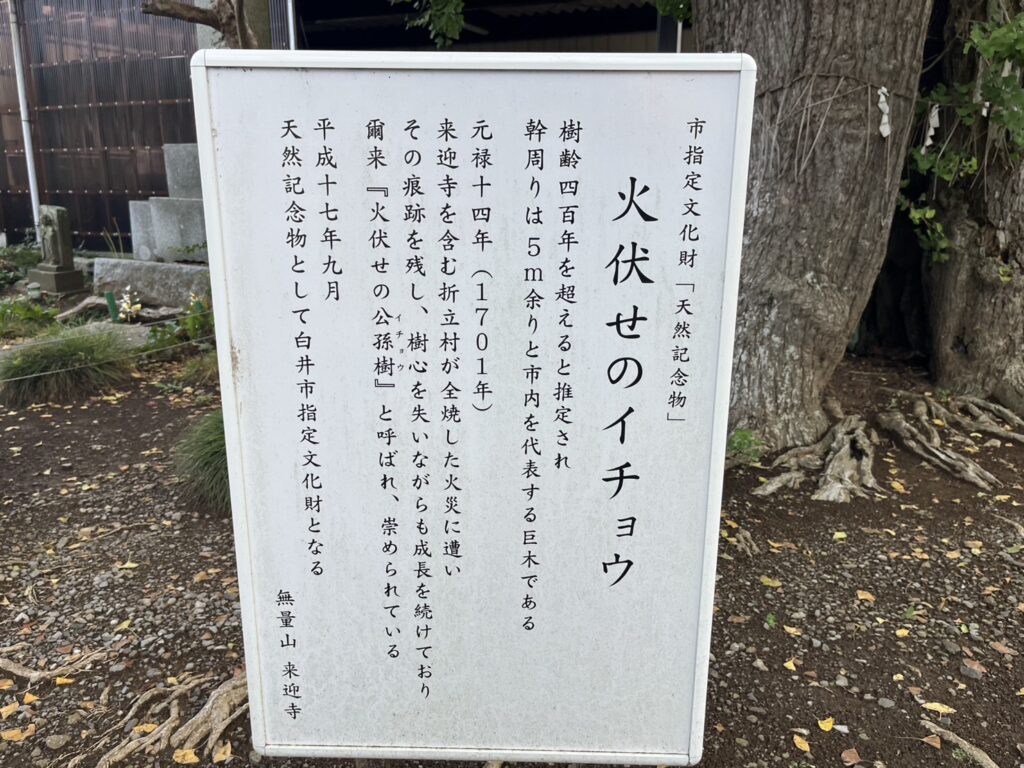 市指定文化財「天然記念物」
火伏せのイチョウ
樹齢四百年を超えると推定され
幹周りは5m余りと市内を代表する巨木である
元禄十四年（1701年）
来迎寺を含む折立村が全焼した火災に遭い
その痕跡を残し、樹心を失いながらも成長を続けており
爾来『火伏せの公孫樹』と呼ばれ、崇められている
イチョウ
平成十七年九月
天然記念物として白井市指定文化財となる
無量山 来迎寺